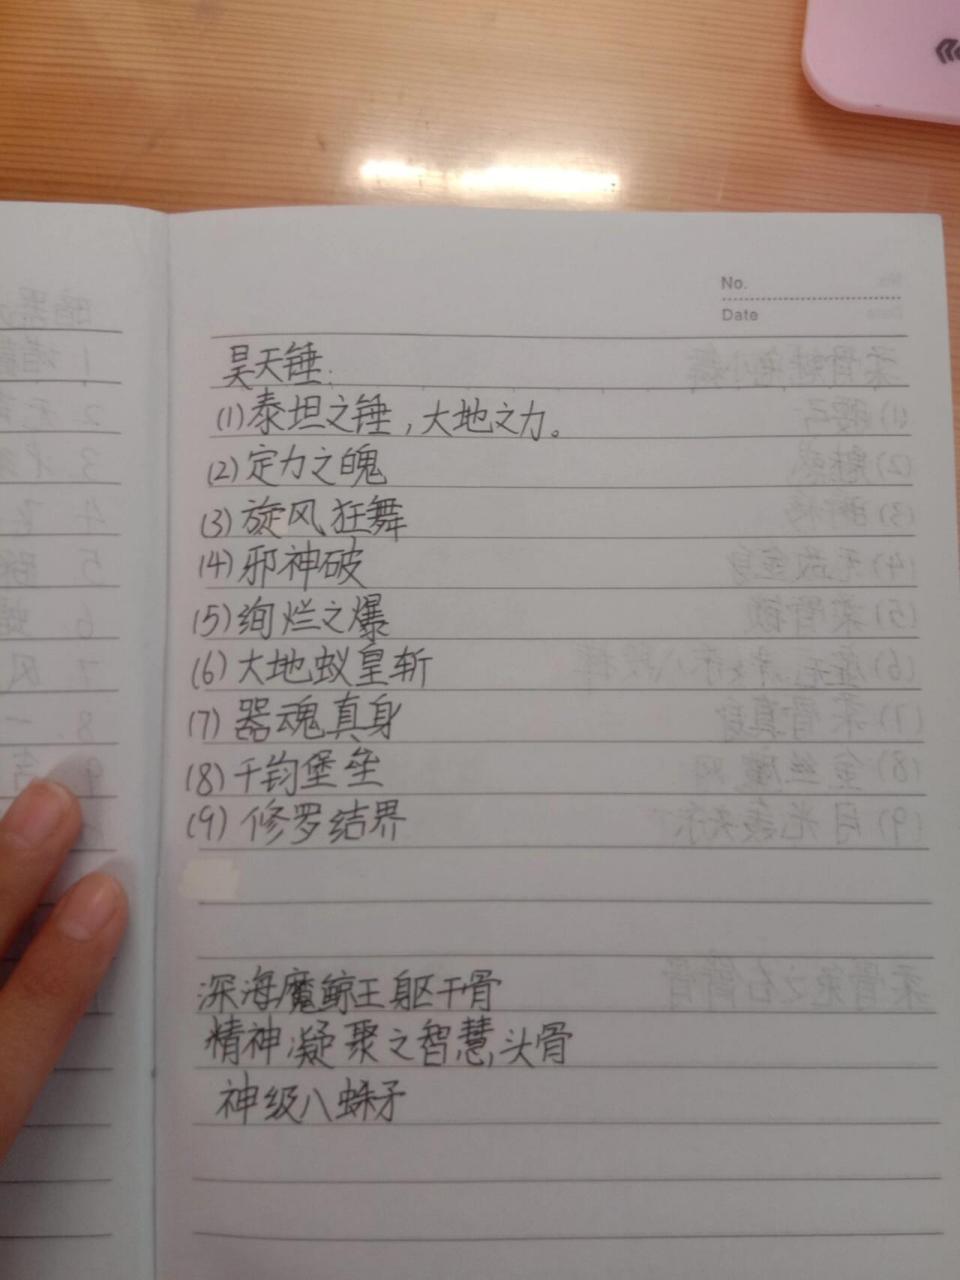 No.
Date
昊天锤:
(1)泰坦之锤,大地之力。
(2)定力之魄
(3)旋风狂舞
(4)邪神破
(5)绚烂之爆
(6)大地蚁皇斩
(7)器魂真身
(8)千钧堡垒
(9)修罗结界
深海魔鲸王躯干骨
精神凝聚之智慧头骨
神级八蛛矛